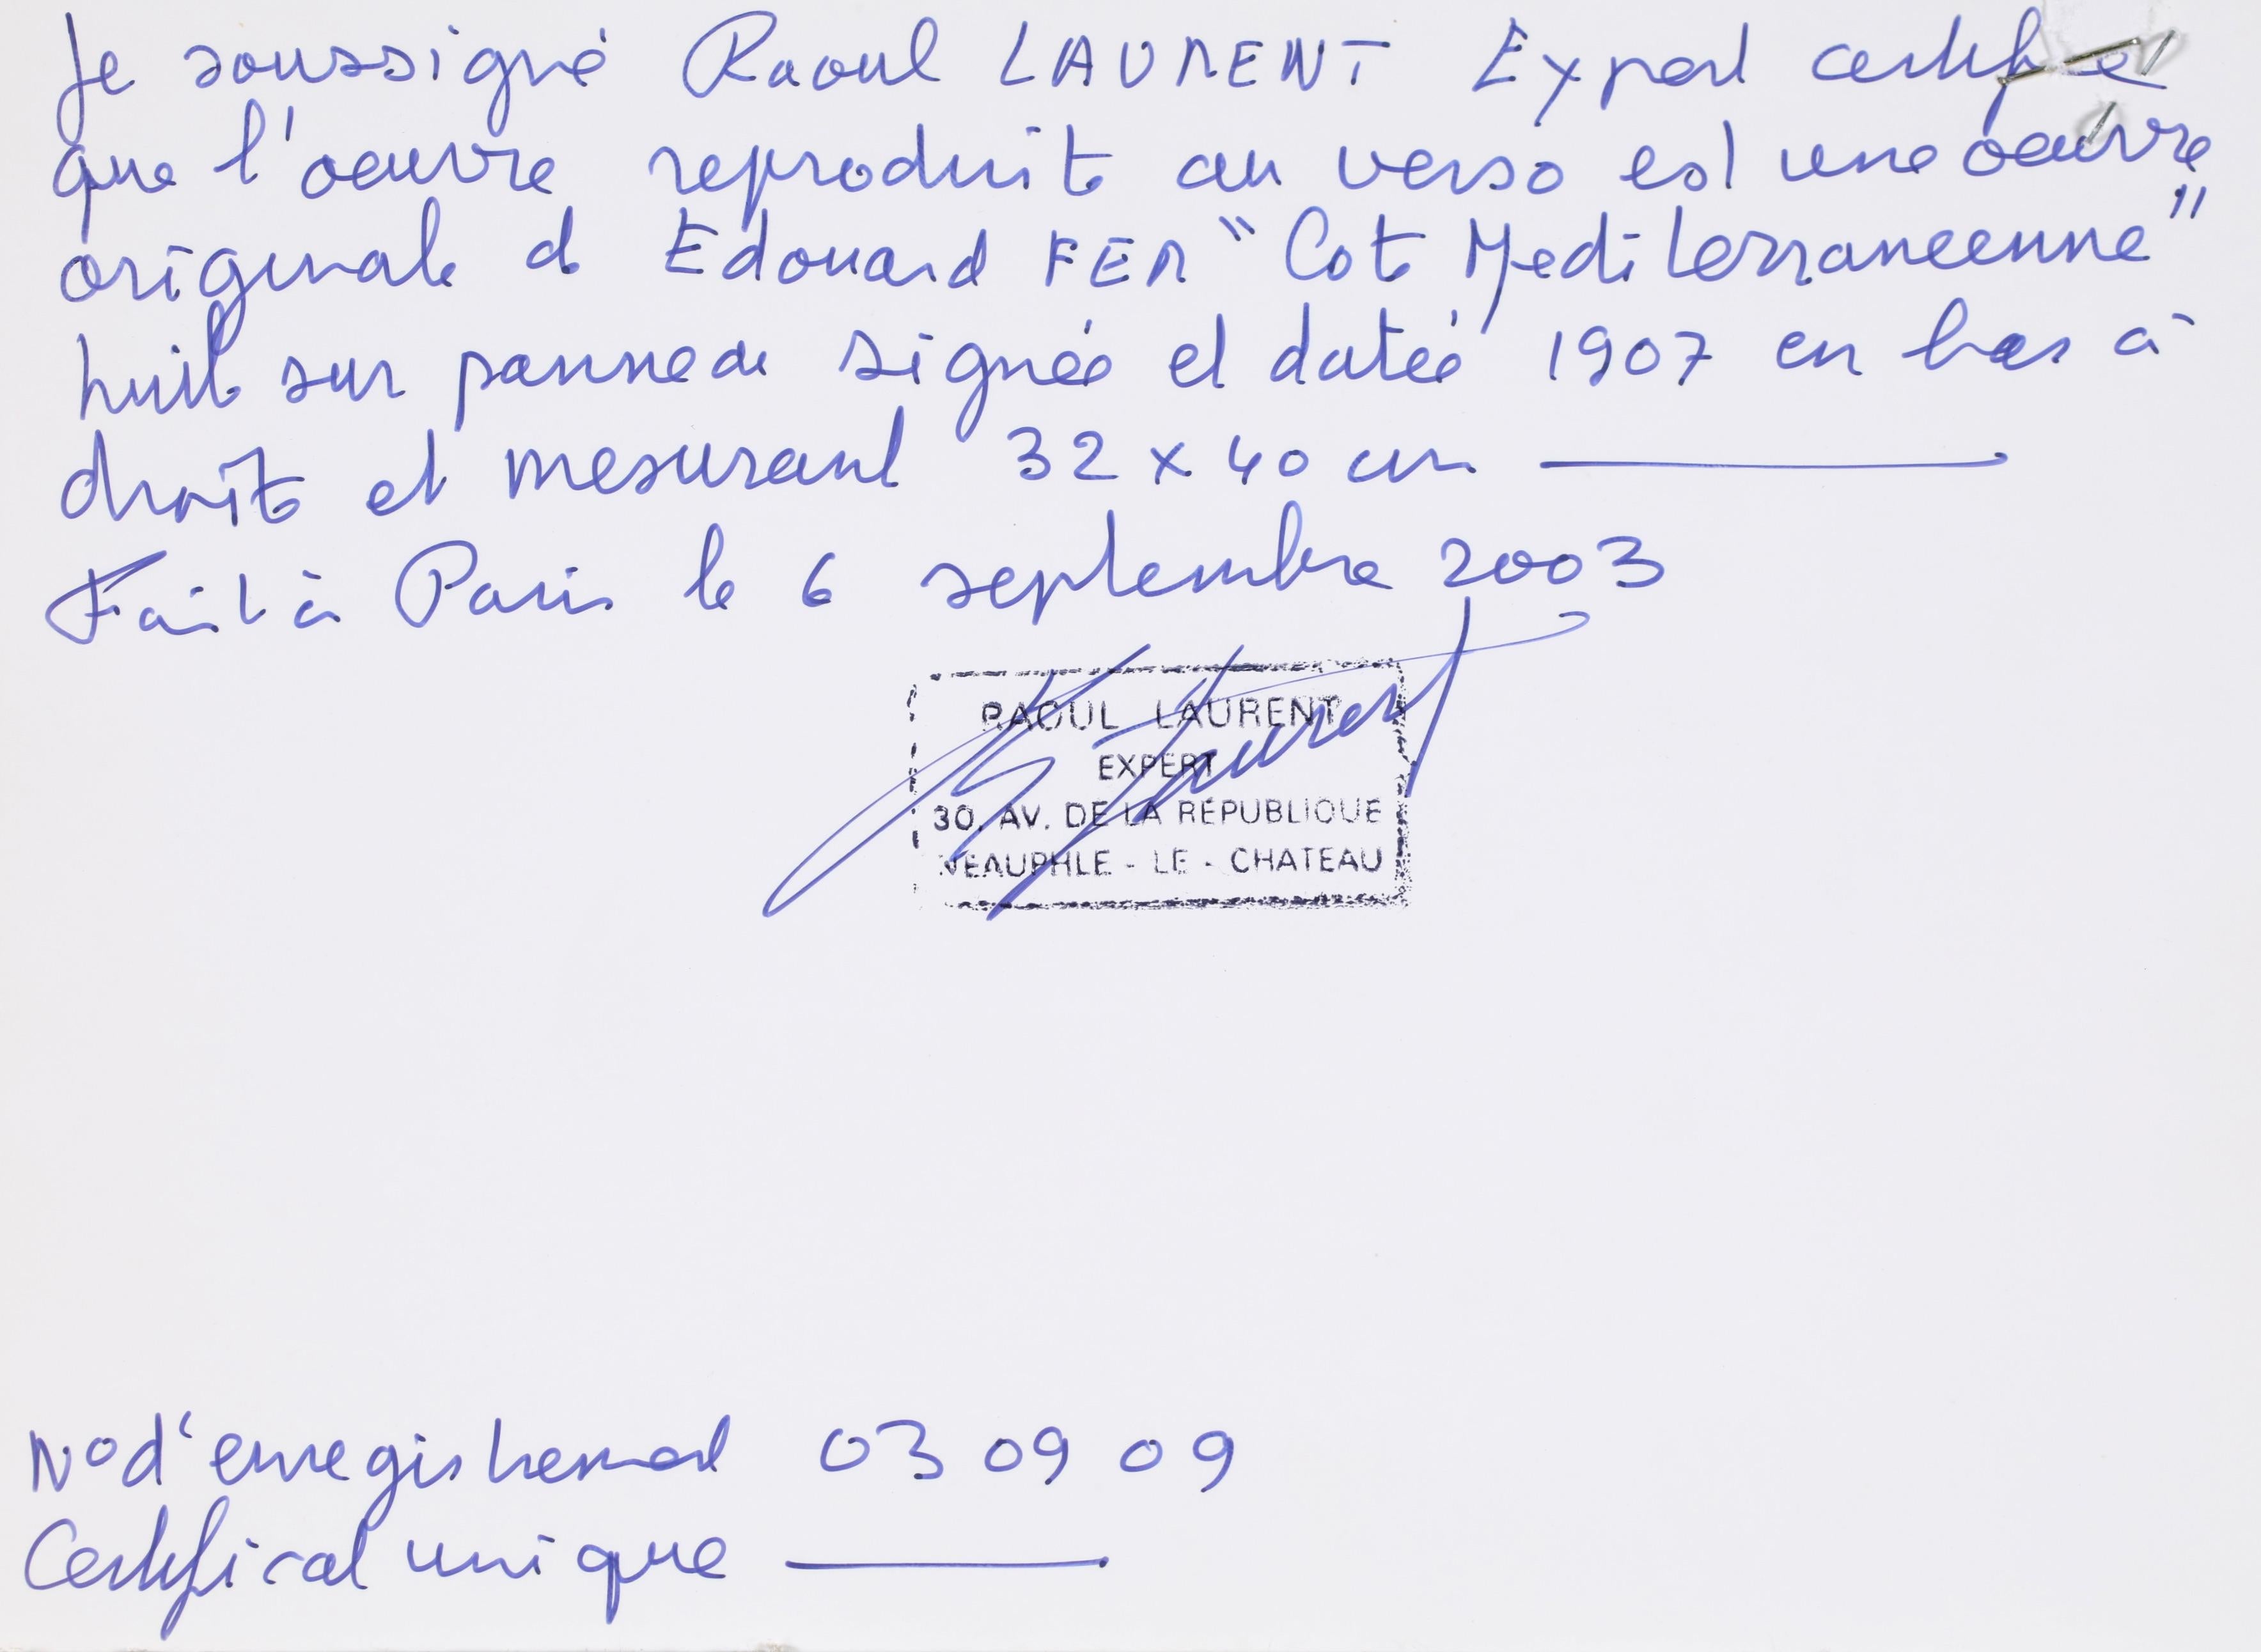 Je soussigné Raoul LAURENT Expert certifie
que l'oeuvre reproduite au verso est une oeuvre
originale de Edouard FER "Cote Mediterraneenne"
huile sur panneau signée et datée 1907 en bas à
droite et mesurant 32 x 40 cm
Fait à Paris le 6 septembre 2003
RAOUL LAURENT
EXPERT
30, AV. DE LA RÉPUBLIQUE
NEAUPHLE - LE - CHATEAU
No d'enregistrement 03 09 09
Certificat unique